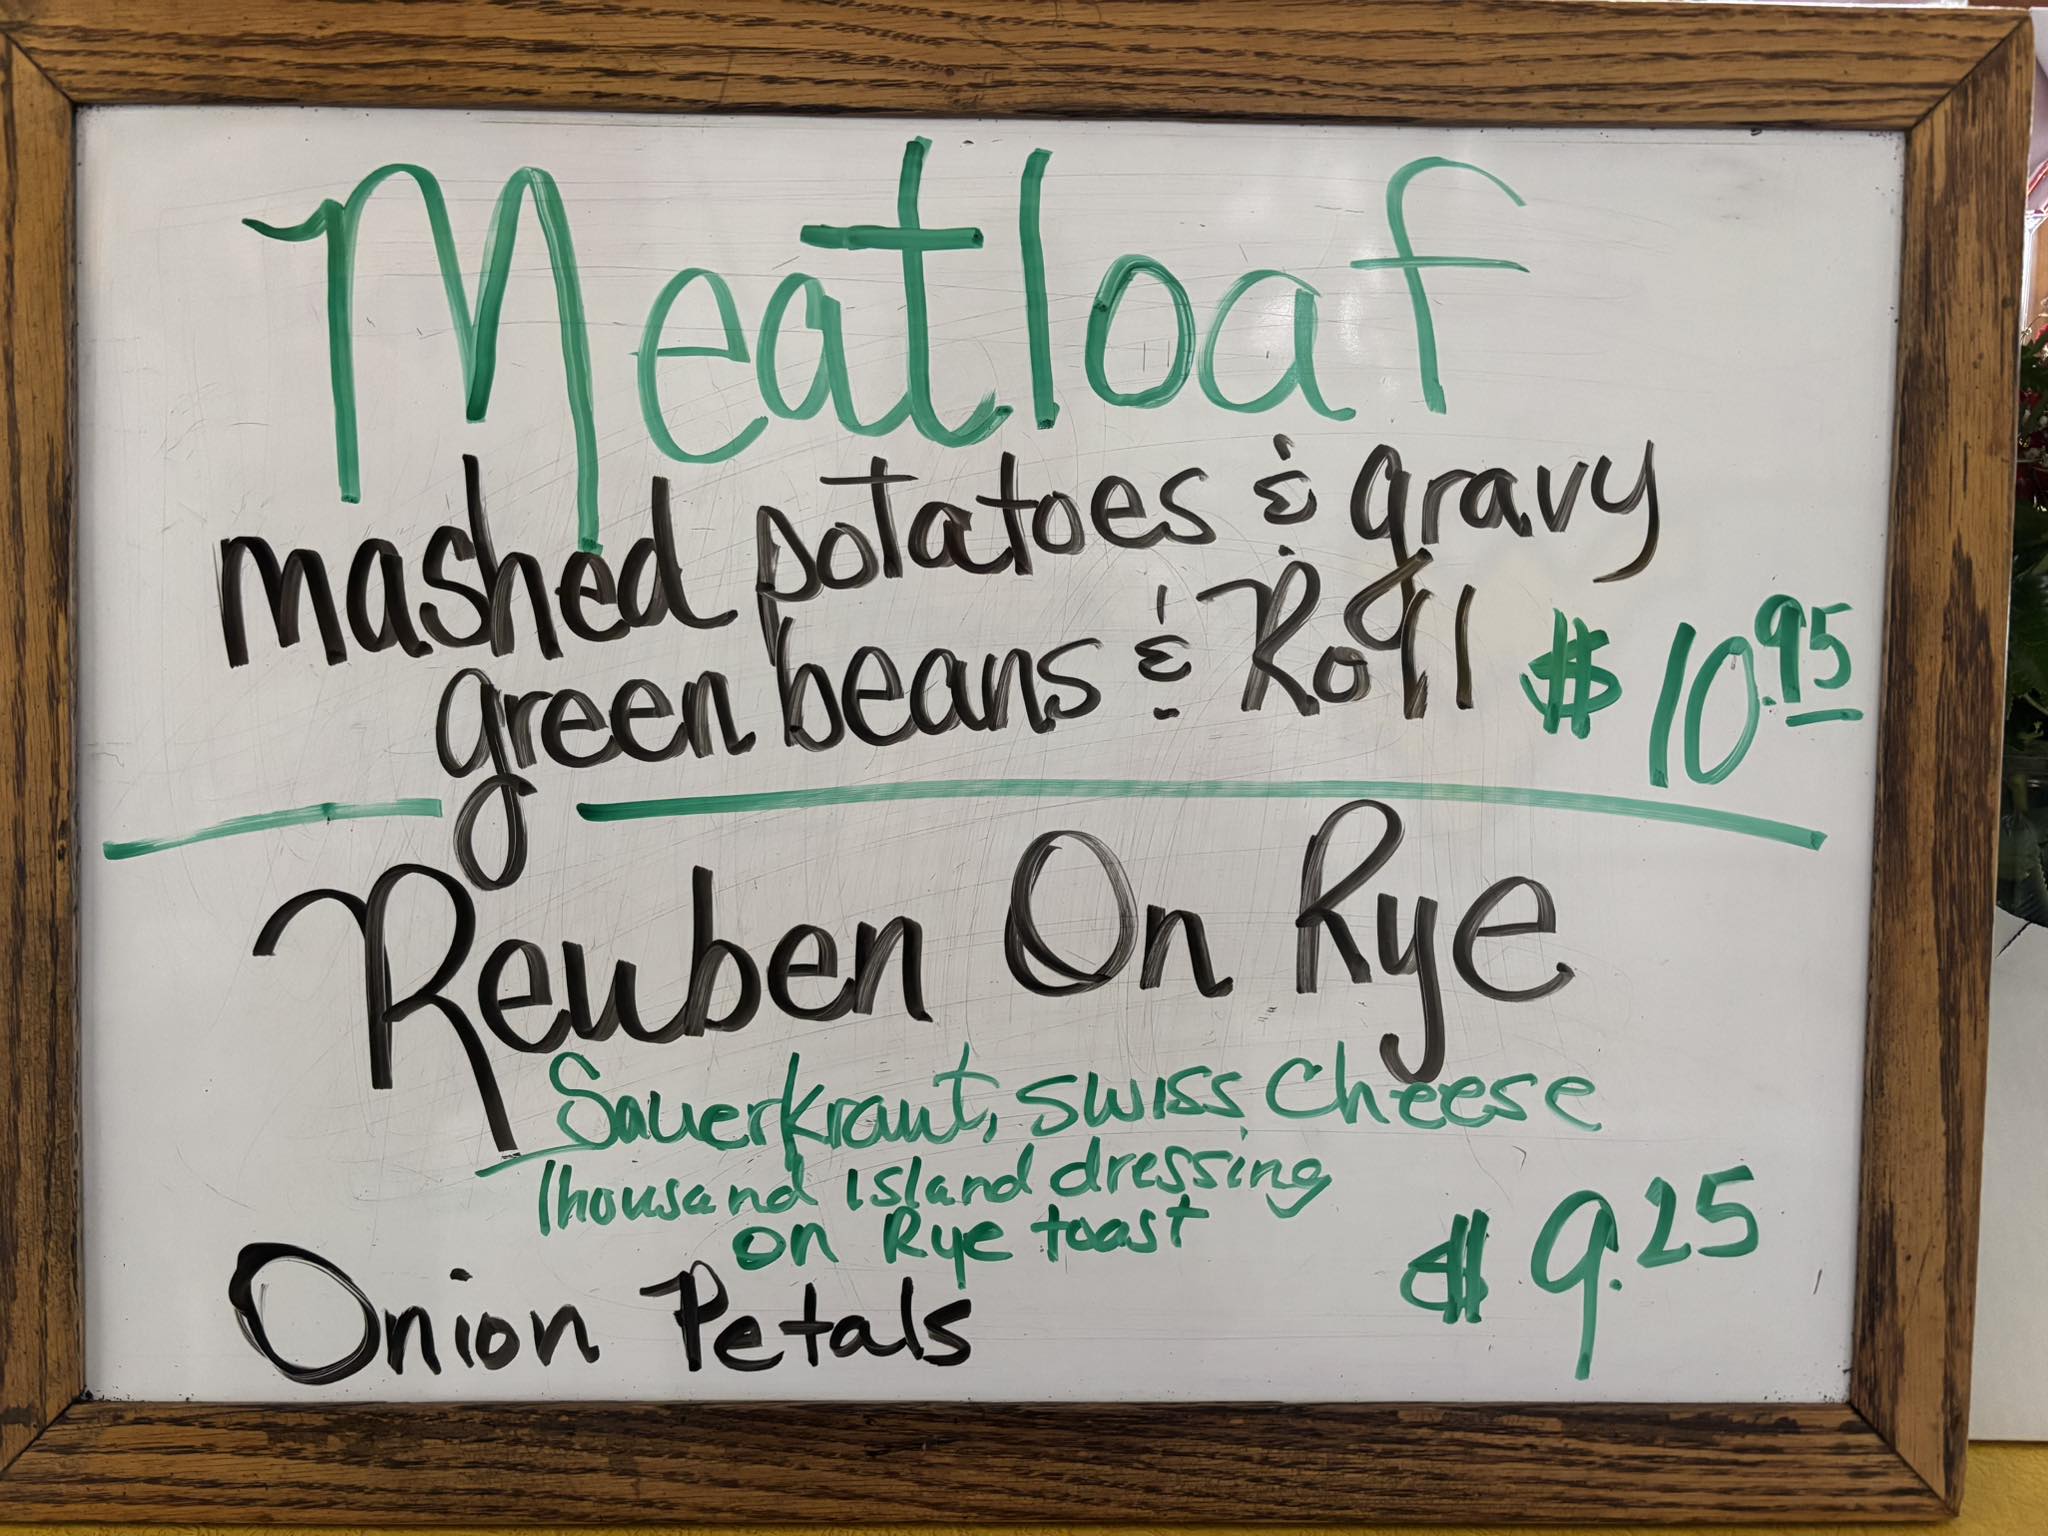 Meatloaf
mashed potatoes & gravy
green beans & Roll $10.95
Reuben On Rye
Sauerkraut, swiss Cheese
Thousand island dressing
on Rye toast $9.25
Onion Petals